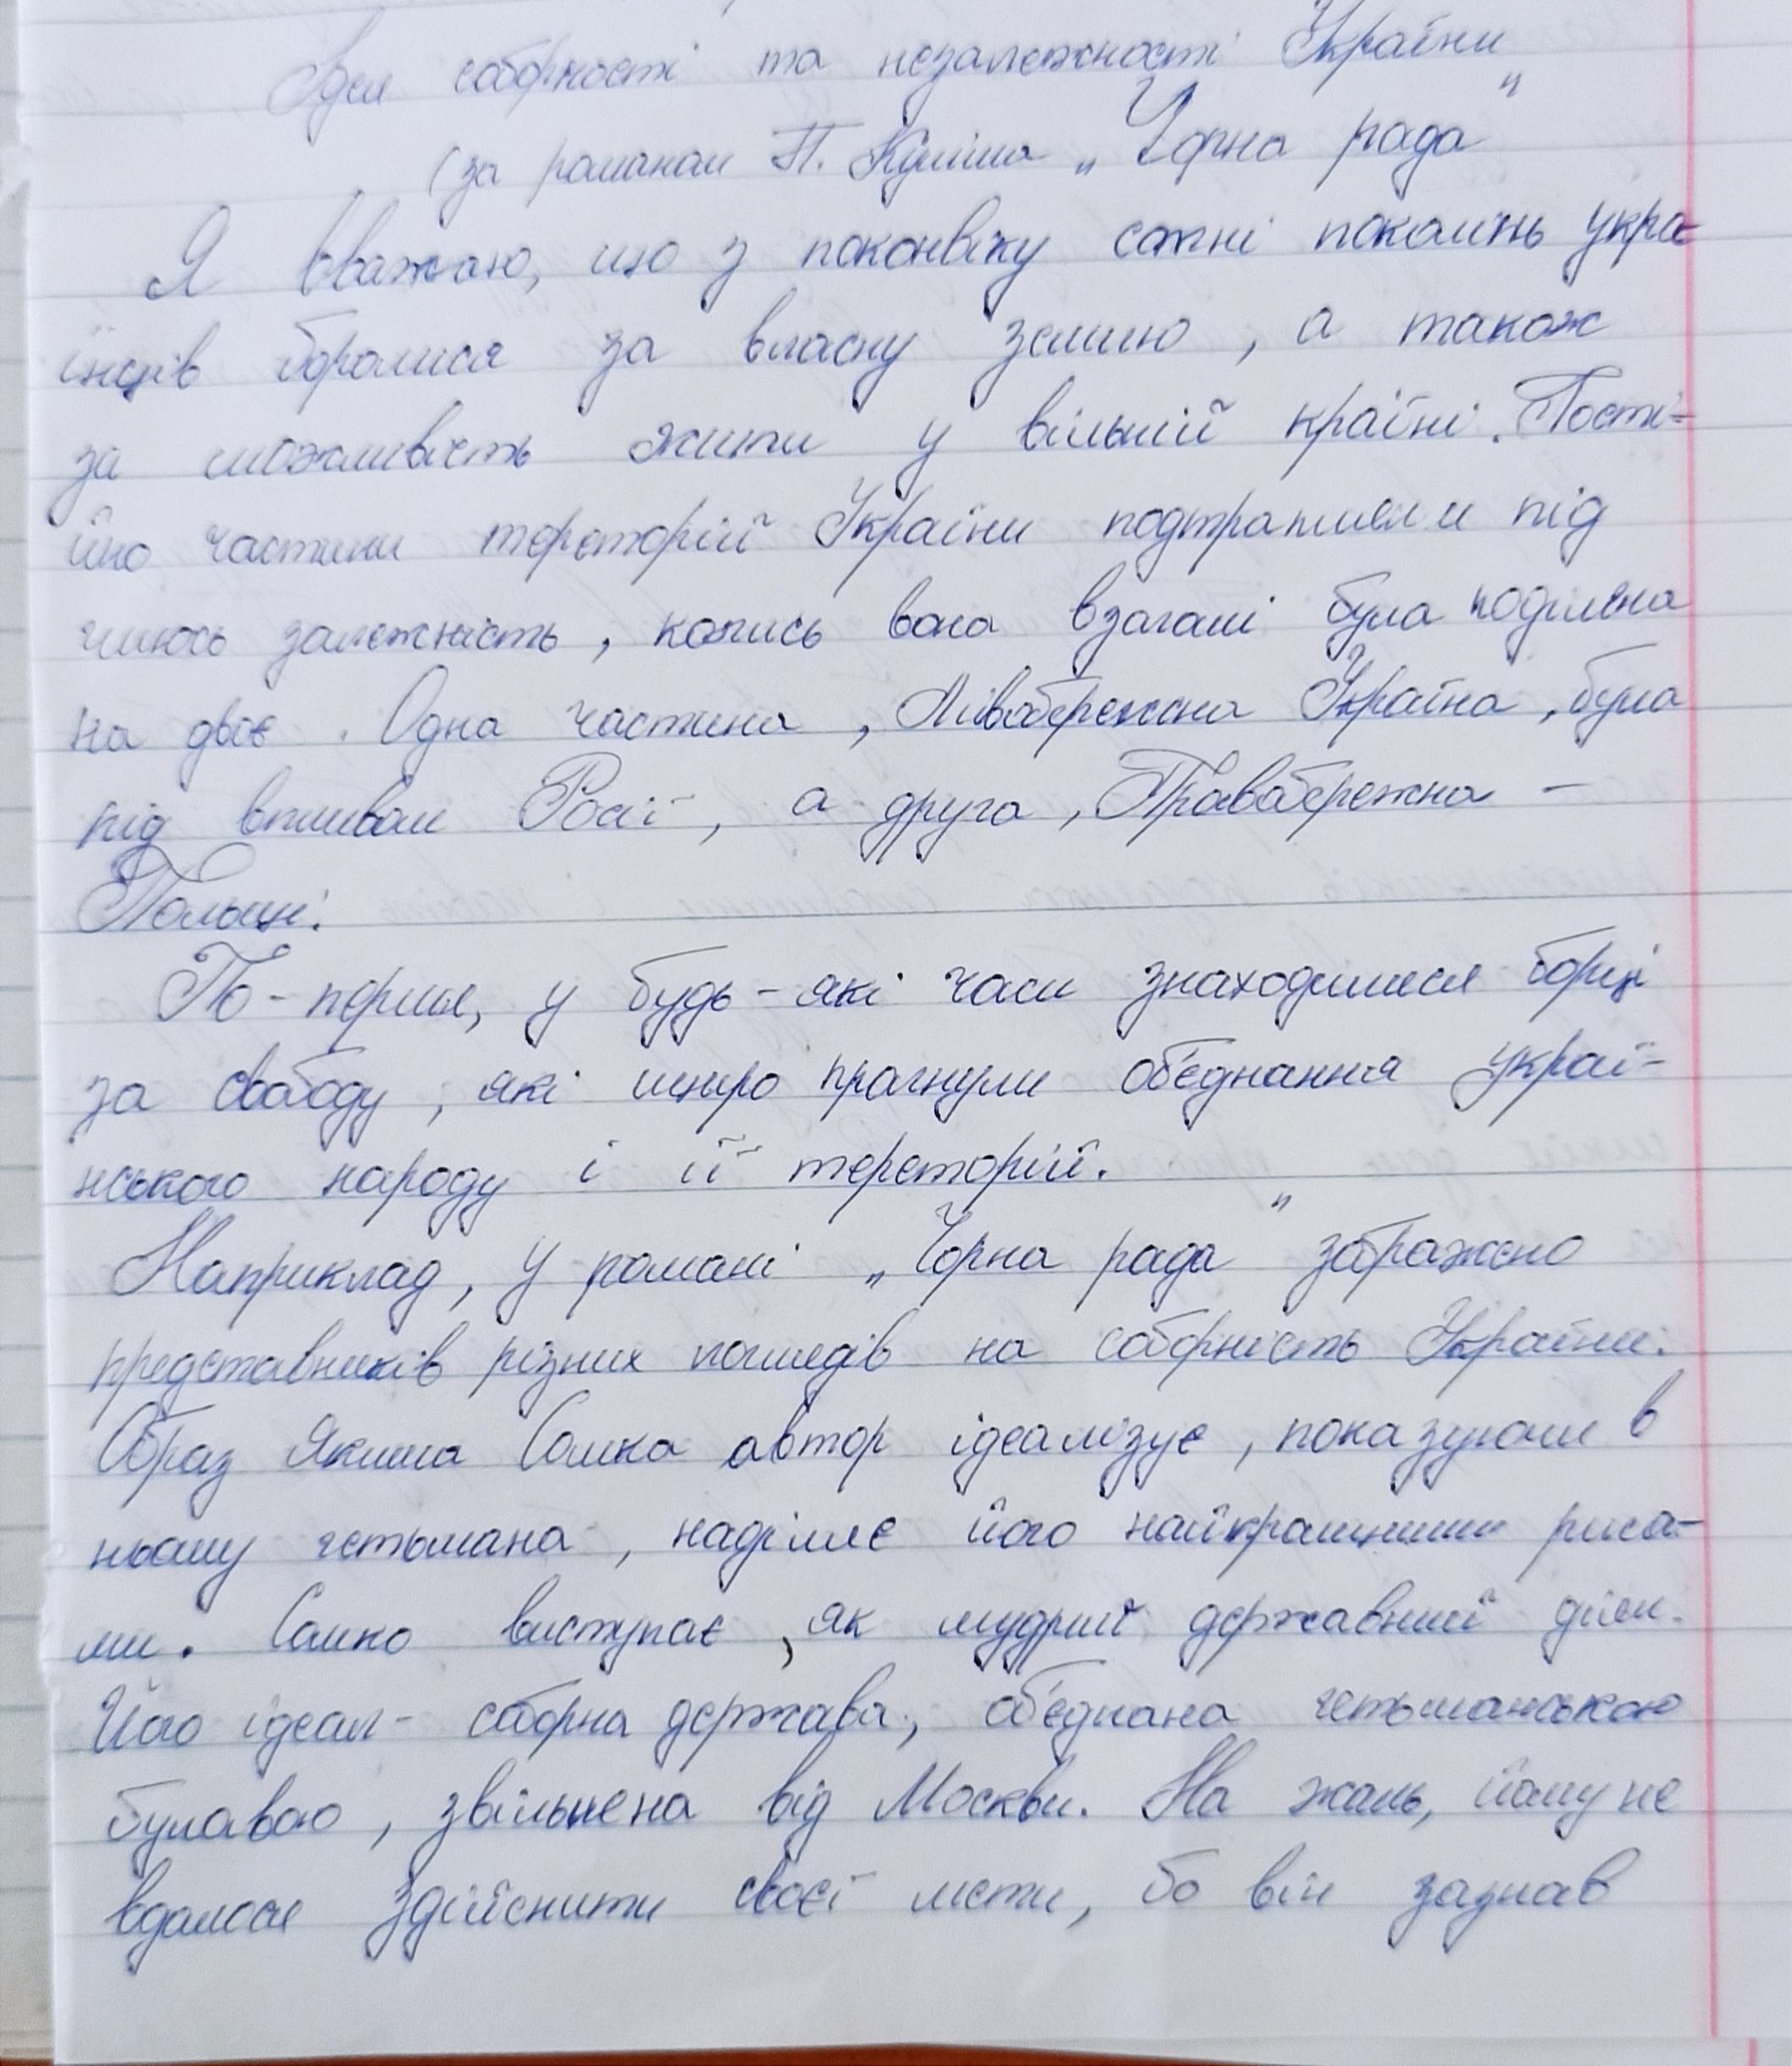 Ідея соборності та незалежності України
(за романом П. Куліша „Чорна рада"
Я вважаю, що з поконвіку сотні поколінь укра-
їнців боролися за власну землю, а також
за можливість жити у вільній країні. Пості-
йно частини тереторій України подтрапляли під
чиюсь залежність, колись вона взагалі була поділена
на двіє. Одна частина, Лівобережна Україна, була
під впливом Росії, а друга, Правобережна -
Польщі.
По-перше, у будь-які часи знаходилися борці
за свободу, які щиро прагнули об'єднання украї-
нського народу і її тереторій.
Наприклад, у романі „Чорна рада" зображено
представників різних поглядів на соборність України.
Образ Якима Сомка автор ідеалізує, показуючи в
ньому гетьмана, наділяє його найкращими риса-
ми. Сомко виступає, як мудрий державний діяч.
Його ідеал - соборна держава, об'єднана гетьманською
булавою, звільнена від Москви. На жаль, йому не
вдалося здійснити своєї мети, бо він зазнав